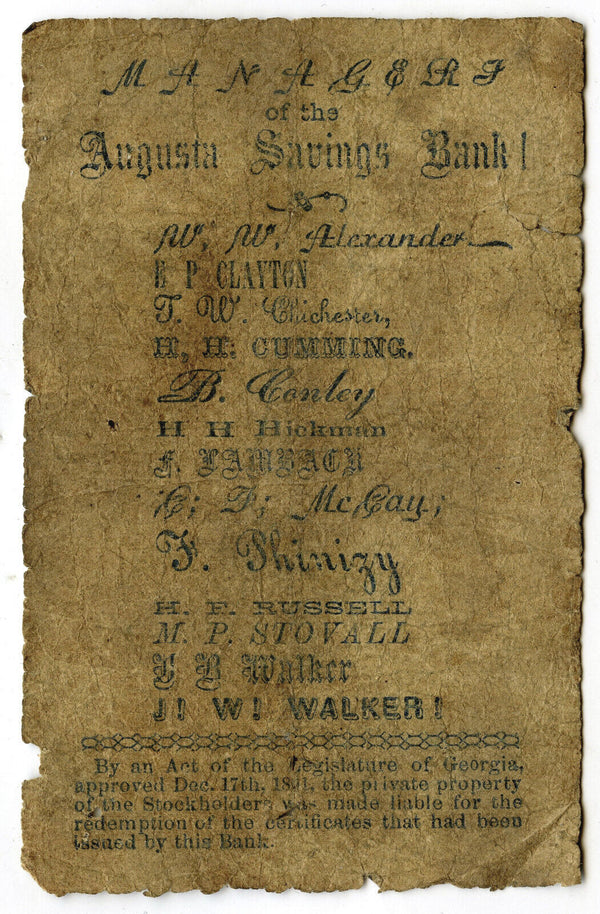 MANAGERS
of the
Augusta Savings Bank!
W. W. Alexander
E P CLAYTON
T. W. Chichester,
H, H: CUMMING.
B. Conley
H H Hickman
F. LAMBACK
C; F; McCay;
F. Phinizy
H. F. RUSSELL
M. P. STOVALL
B Walker
J! W! WALKER!
By an Act of the Legislature of Georgia,
approved Dec. 17th, the private property
of the Stockholders was made liable for the
redemption of the certificates that had been
issued by this Bank.